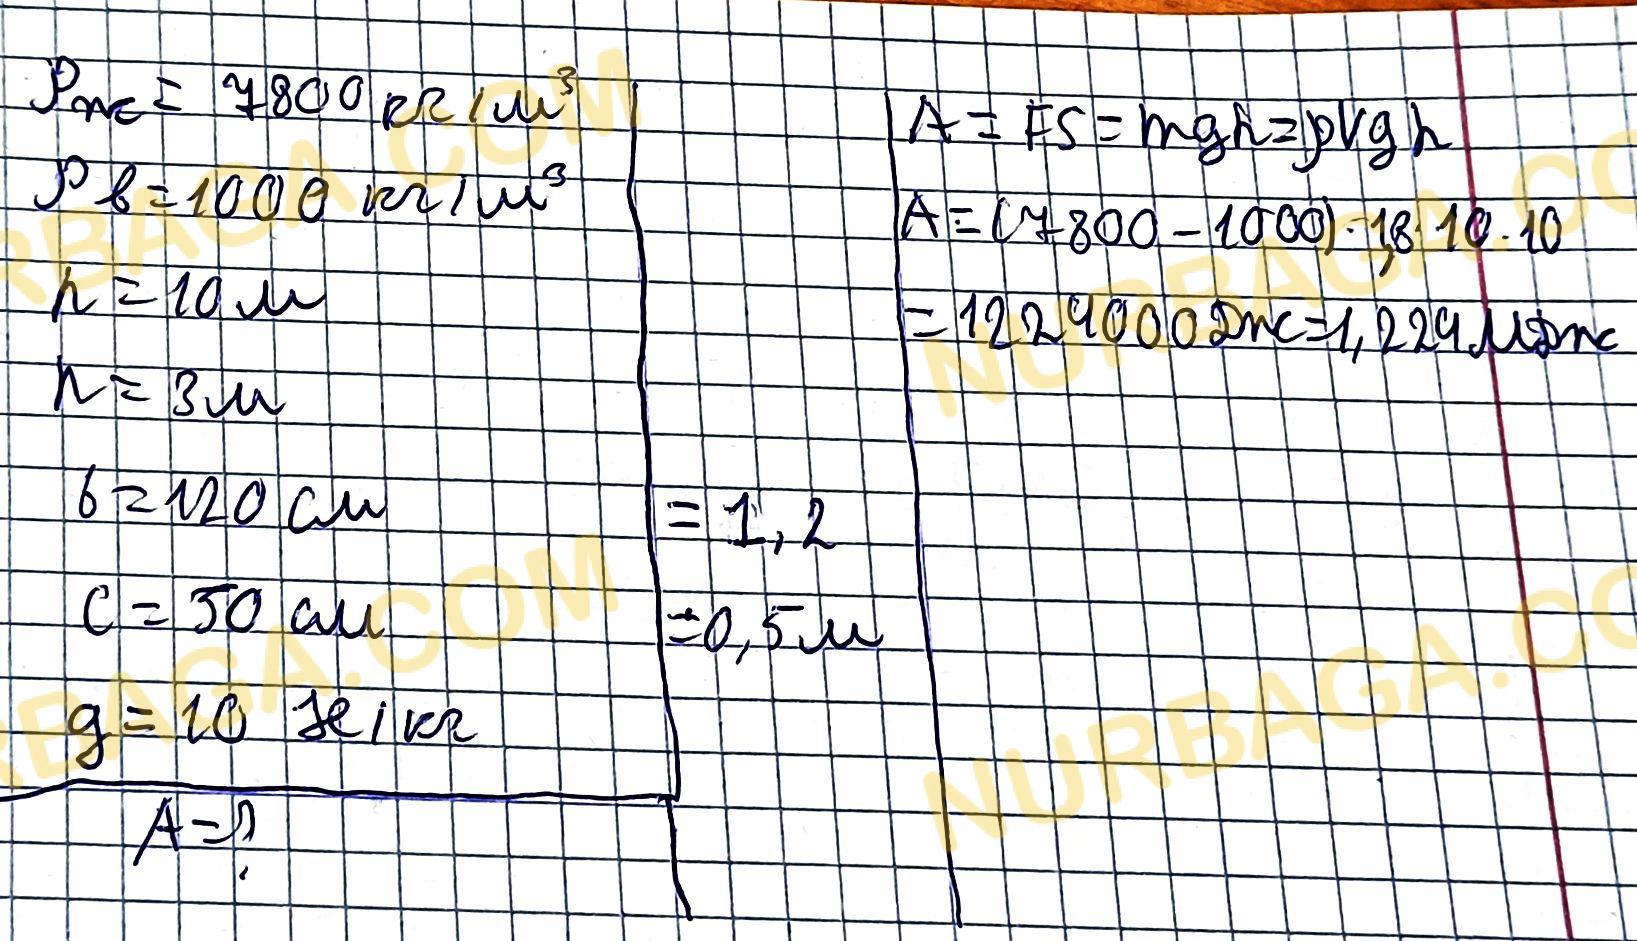 ρж = 7800 кг/м³
ρв = 1000 кг/м³
h = 10 м
h = 3 м
b = 120 см = 1,2
c = 50 см = 0,5 м
g = 10 Н/кг
A = ?
A = FS = mgh = ρVgh
A = (7800 - 1000) · 1,8 · 10 · 10
= 1224000 Дж = 1,224 МДж
NURBAGA.COM
NURBAGA.COM
NURBAGA.COM
NURBAGA.COM